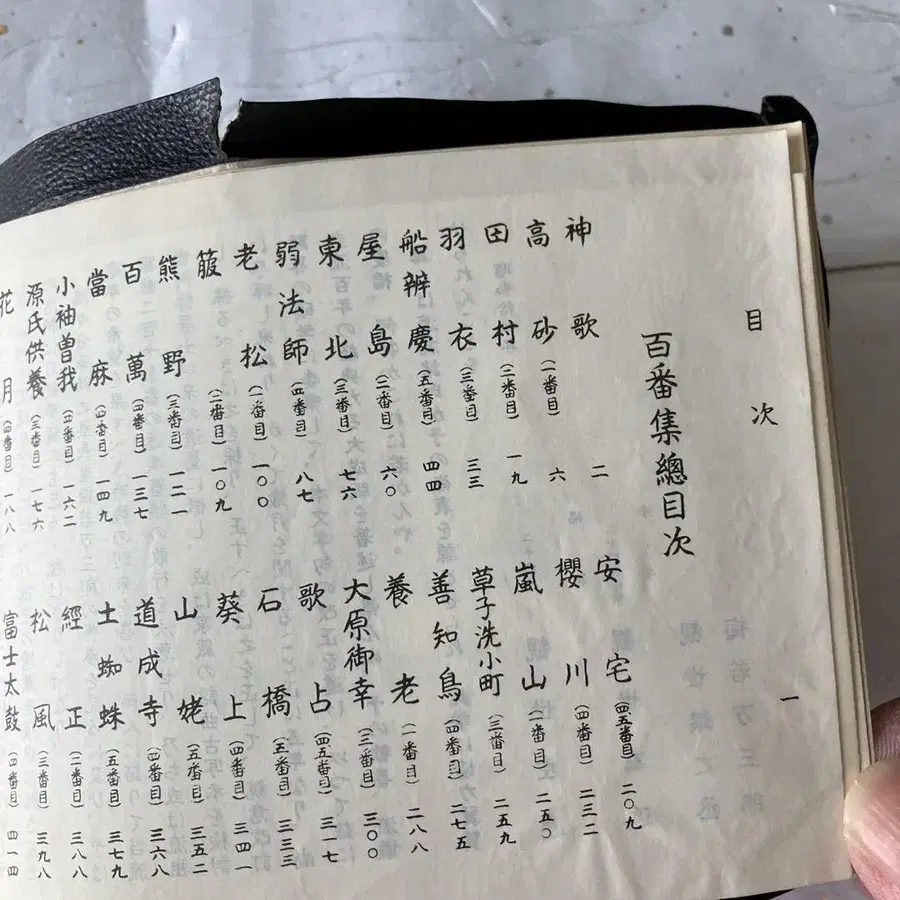 目次
一
百番集總目次
神歌 二
高砂 (一番目) 六
田村 (二番目) 一九
羽衣 (三番目) 三三
船辨慶 (五番目) 四四
屋島 (二番目) 六〇
東北 (三番目) 七六
弱法師 (四番目) 八七
老松 (一番目) 一〇〇
箙 (二番目) 一〇九
熊野 (三番目) 一二一
百萬 (四番目) 一三七
當麻 (四番目) 一四九
小袖曽我 (四番目) 一六二
源氏供養 (三番目) 一七六
花月 (四番目) 一八八
安宅 (四五番目) 二〇九
櫻川 (四番目) 二三二
嵐山 (一番目) 二五〇
草子洗小町 (三番目) 二五九
善知鳥 (四番目) 二七五
養老 (一番目) 二八八
大原御幸 (三番目) 三〇〇
歌占 (四五番目) 三一七
石橋 (五番目) 三三三
葵上 (四番目) 三四一
山姥 (五番目) 三五二
道成寺 (四番目) 三六八
土蜘蛛 (五番目) 三七九
經正 (二番目) 三八八
松風 (三番目) 三九八
富士太鼓 (四番目) 四一四